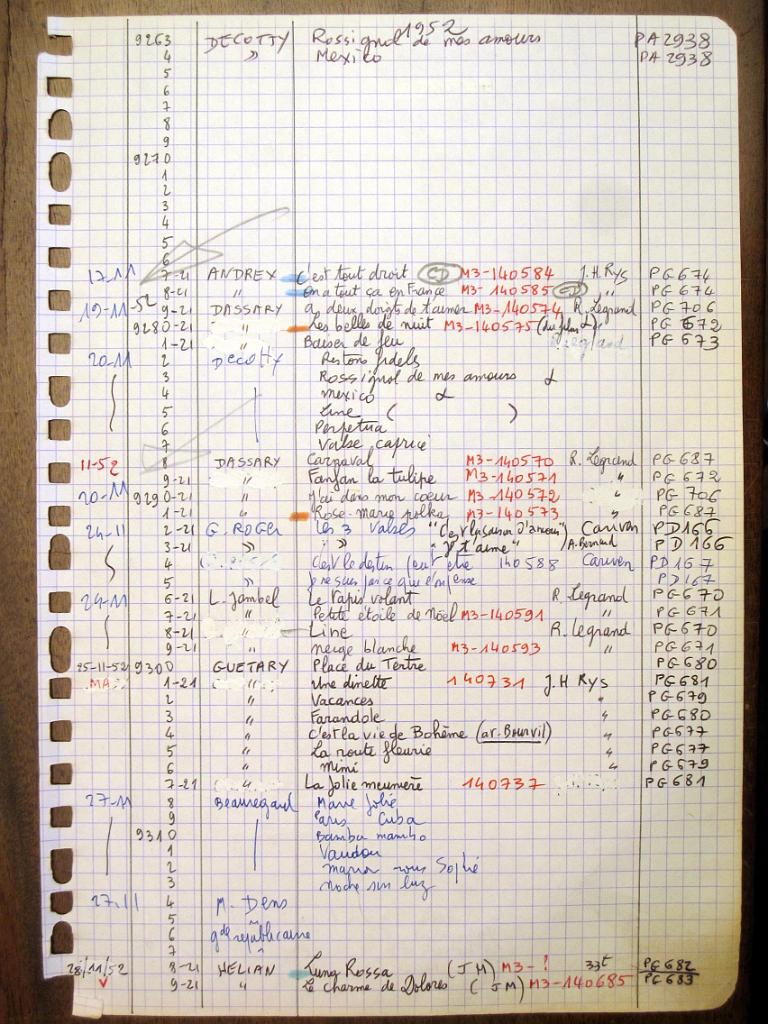 1952
9263 DECOTTY Rossignol de mes amours PA2938
4 " Mexico PA 2938
5
6
7
8
9
9270
1
2
3
4
5
6
17-11 7-21 ANDREX C'est tout droit CD M3-140584 J.H Rys PG674
8-21 " On a tout ça en France M3-140585 CD " PG 674
19-11-52 9-21 DASSARY A deux doigts de t'aimer M3-140574 R. Legrand PG 706
9280-21 " Les belles de nuit M3-140575 (du film PG 672
1-21 " Baiser de feu PG 673
20-11 2 Decotty Restons fidels
3 Rossignol de mes amours
4 Mexico
5 Line ( )
6 Perpetua
7 Valse caprice
11-52 8 DASSARY Carnaval M3-140570 R. Legrand PG687
9-21 " Fanfan la tulipe M3-140571 " PG 672
20-11 9290-21 " J'ai dans mon coeur M3-140572 " PG 706
1-21 " Rose-marie polka M3-140573 " PG687
24-11 2-21 G. ROGER Les 3 Valses "C'est la saison d'amour" Cariven PD166
3-21 " " "Je t'aime" /A. Bernard PD 166
4 C'est le destin peut être 140588 Cariven PD 167
5 " Je ne suis pas ce que l'on pense PD 167
24-11 6-21 L. Jambel Le Tapis volant R. Legrand PG670
7-21 " Petite étoile de Noël M3-140591 " PG 671
8-21 " Line R. Legrand PG 670
9-21 " neige blanche M3-140593 " PG671
25-11-52 9300 GUETARY Place du Tertre PG680
MA 1-21 " Une dinette 140731 J.H Rys PG681
2 " Vacances PG679
3 " Farandole " PG 680
4 " C'est la vie de Bohême (av. Bourvil) " PG677
5 " La route fleurie " PG677
6 " Mimi " PG679
7-21 " La Jolie meunière 140737 PG681
27-11 8 Beauregard Marie Jolie
9 Paris Cuba
9310 Bamba mambo
1 Vaudou
2 Sophie
3 noche sin luz
27.11 4 M. Dens
5 "
6 gde républicaine
7
28/11/52 8-21 HELIAN Luna Rossa (JM) M3-! 33t PG682
9-21 " Le charme de Dolores (JM) M3-140685 PG683